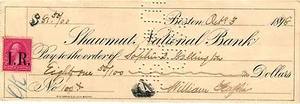 $81 50/100 Boston, Oct 3 1898
Shawmut National Bank
Pay to the order of Sophia S. Wellington
Eighty one 50/100 Dollars
I.R.
No. 1004 William